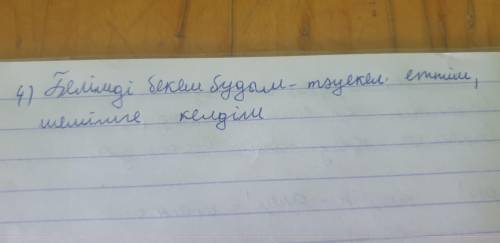 4) Белімді бекем будым - тәуекел еттім,
шешімге келдім